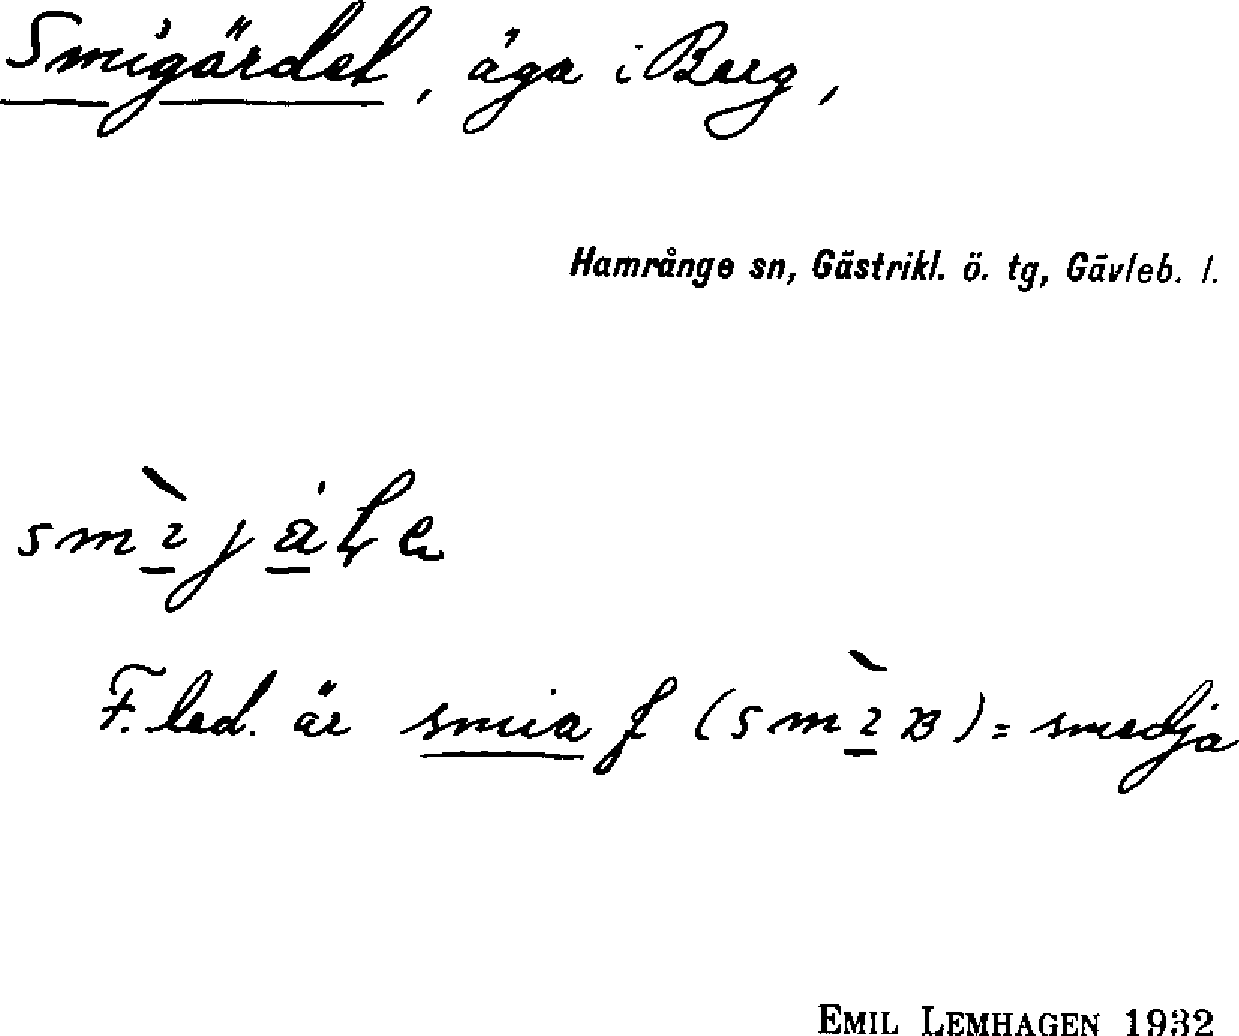 Smigärdet, äga i Berg,
Hamrånge sn, Gästrikl. ö. tg, Gävleb. l.
F. led. är smia f = smedja
EMIL LEMHAGEN 1932